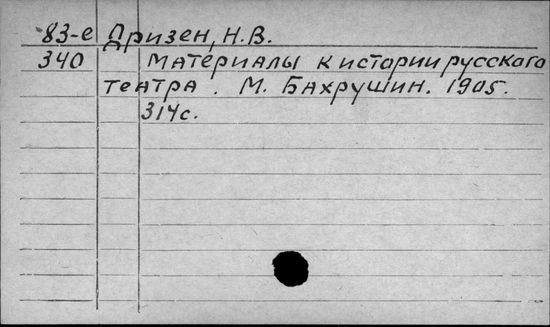 83-е Дризен, Н.В.
340 Материалы к истории русского
театра. М. Бахрушин. 1905.
314с.